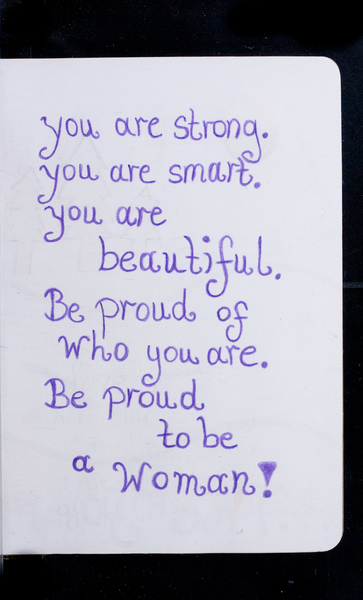 you are strong.
you are smart.
you are
beautiful.
Be proud of
who you are.
Be proud
to be
a Woman!